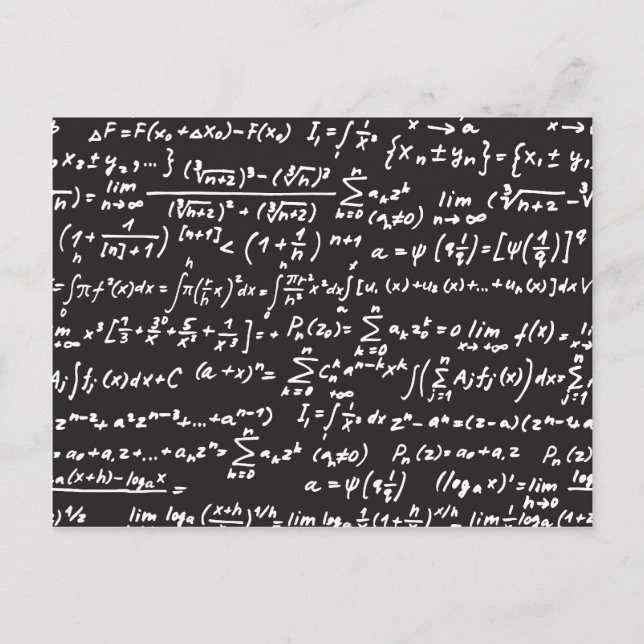 ΔF=F(x₀+Δx₀)-F(x₀) I₁=∫₁ 1/x³ x→a x→
x₂±y₂,...} {xₙ±yₙ}={x₁±y
lim n→∞ ((∛(n+2))³-(∛n)³)/((∛(n+2))²+(∛(n+2)) ∑_{k=0}^{n} aₖz^k (aₙ≠0) lim n→∞ (∛(n+2)-∛
(1+1/([n]+1))^{[n+1]} < (1+1/n)^{n+1} a=ψ(q 1/q)=[ψ(1/q)]^q
=∫₀^h πf²(x)dx=∫₀^h π(r/h x)²dx=∫₀^h πr²/h² x²dx ∫ₐ[u₁(x)+u₂(x)+...+uₙ(x)]dx
x→+∞ x³[7/3+3⁰/x+5/x²+1/x³]=+ Pₙ(z₀)=∑_{k=0}^{n} aₖz₀^k=0 lim x→+∞ f(x)=
Aⱼ∫fⱼ(x)dx+C (a+x)ⁿ=∑_{k=0}^{n} Cₙ^k a^{n-k}x^k ∫(∑_{j=1}^{n} Aⱼfⱼ(x))dx=∑_{j=1}^{n} A
z^{n-2}+a²z^{n-3}+...+a^{n-1}) I₁=∫₁ 1/x³ dx zⁿ-aⁿ=(z-a)(z^{n-1}
=a₀+a₁z+...+aₙzⁿ=∑_{k=0}^{n} aₖz^k (aₙ≠0) Pₙ(z)=a₀+a₁z Pₙ(z)=
(x+h)-logₐx = a=ψ(q 1/q) (logₐx)'=lim h→0
)^{1/2} lim logₐ((x+h)/x)^{1/h}=lim logₐ 1/x(1+h/x)^{x/h}=lim 1/x logₐ(1+